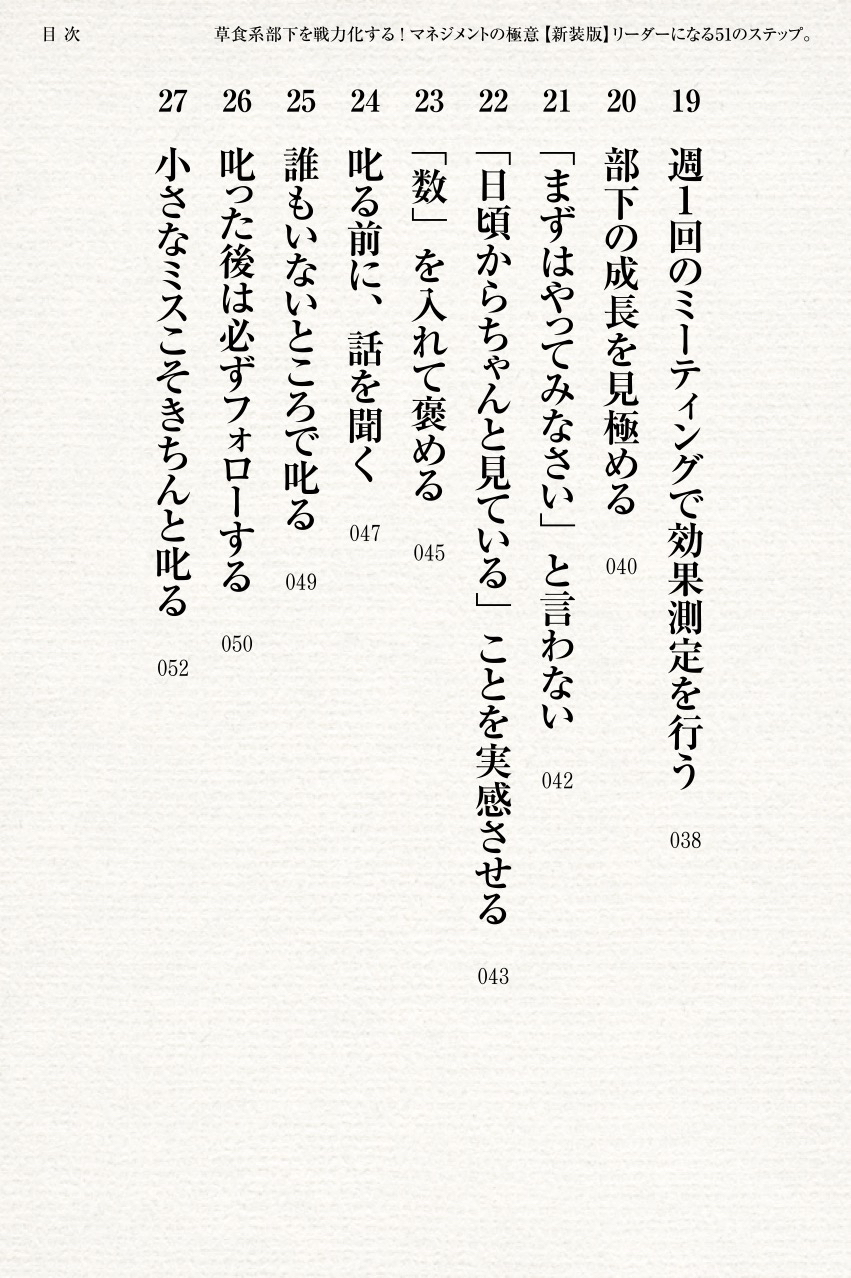 目次
草食系部下を戦力化する！マネジメントの極意【新装版】リーダーになる51のステップ。
19 週1回のミーティングで効果測定を行う 038
20 部下の成長を見極める 040
21 「まずはやってみなさい」と言わない 042
22 「日頃からちゃんと見ている」ことを実感させる 043
23 「数」を入れて褒める 045
24 叱る前に、話を聞く 047
25 誰もいないところで叱る 049
26 叱った後は必ずフォローする 050
27 小さなミスこそきちんと叱る 052